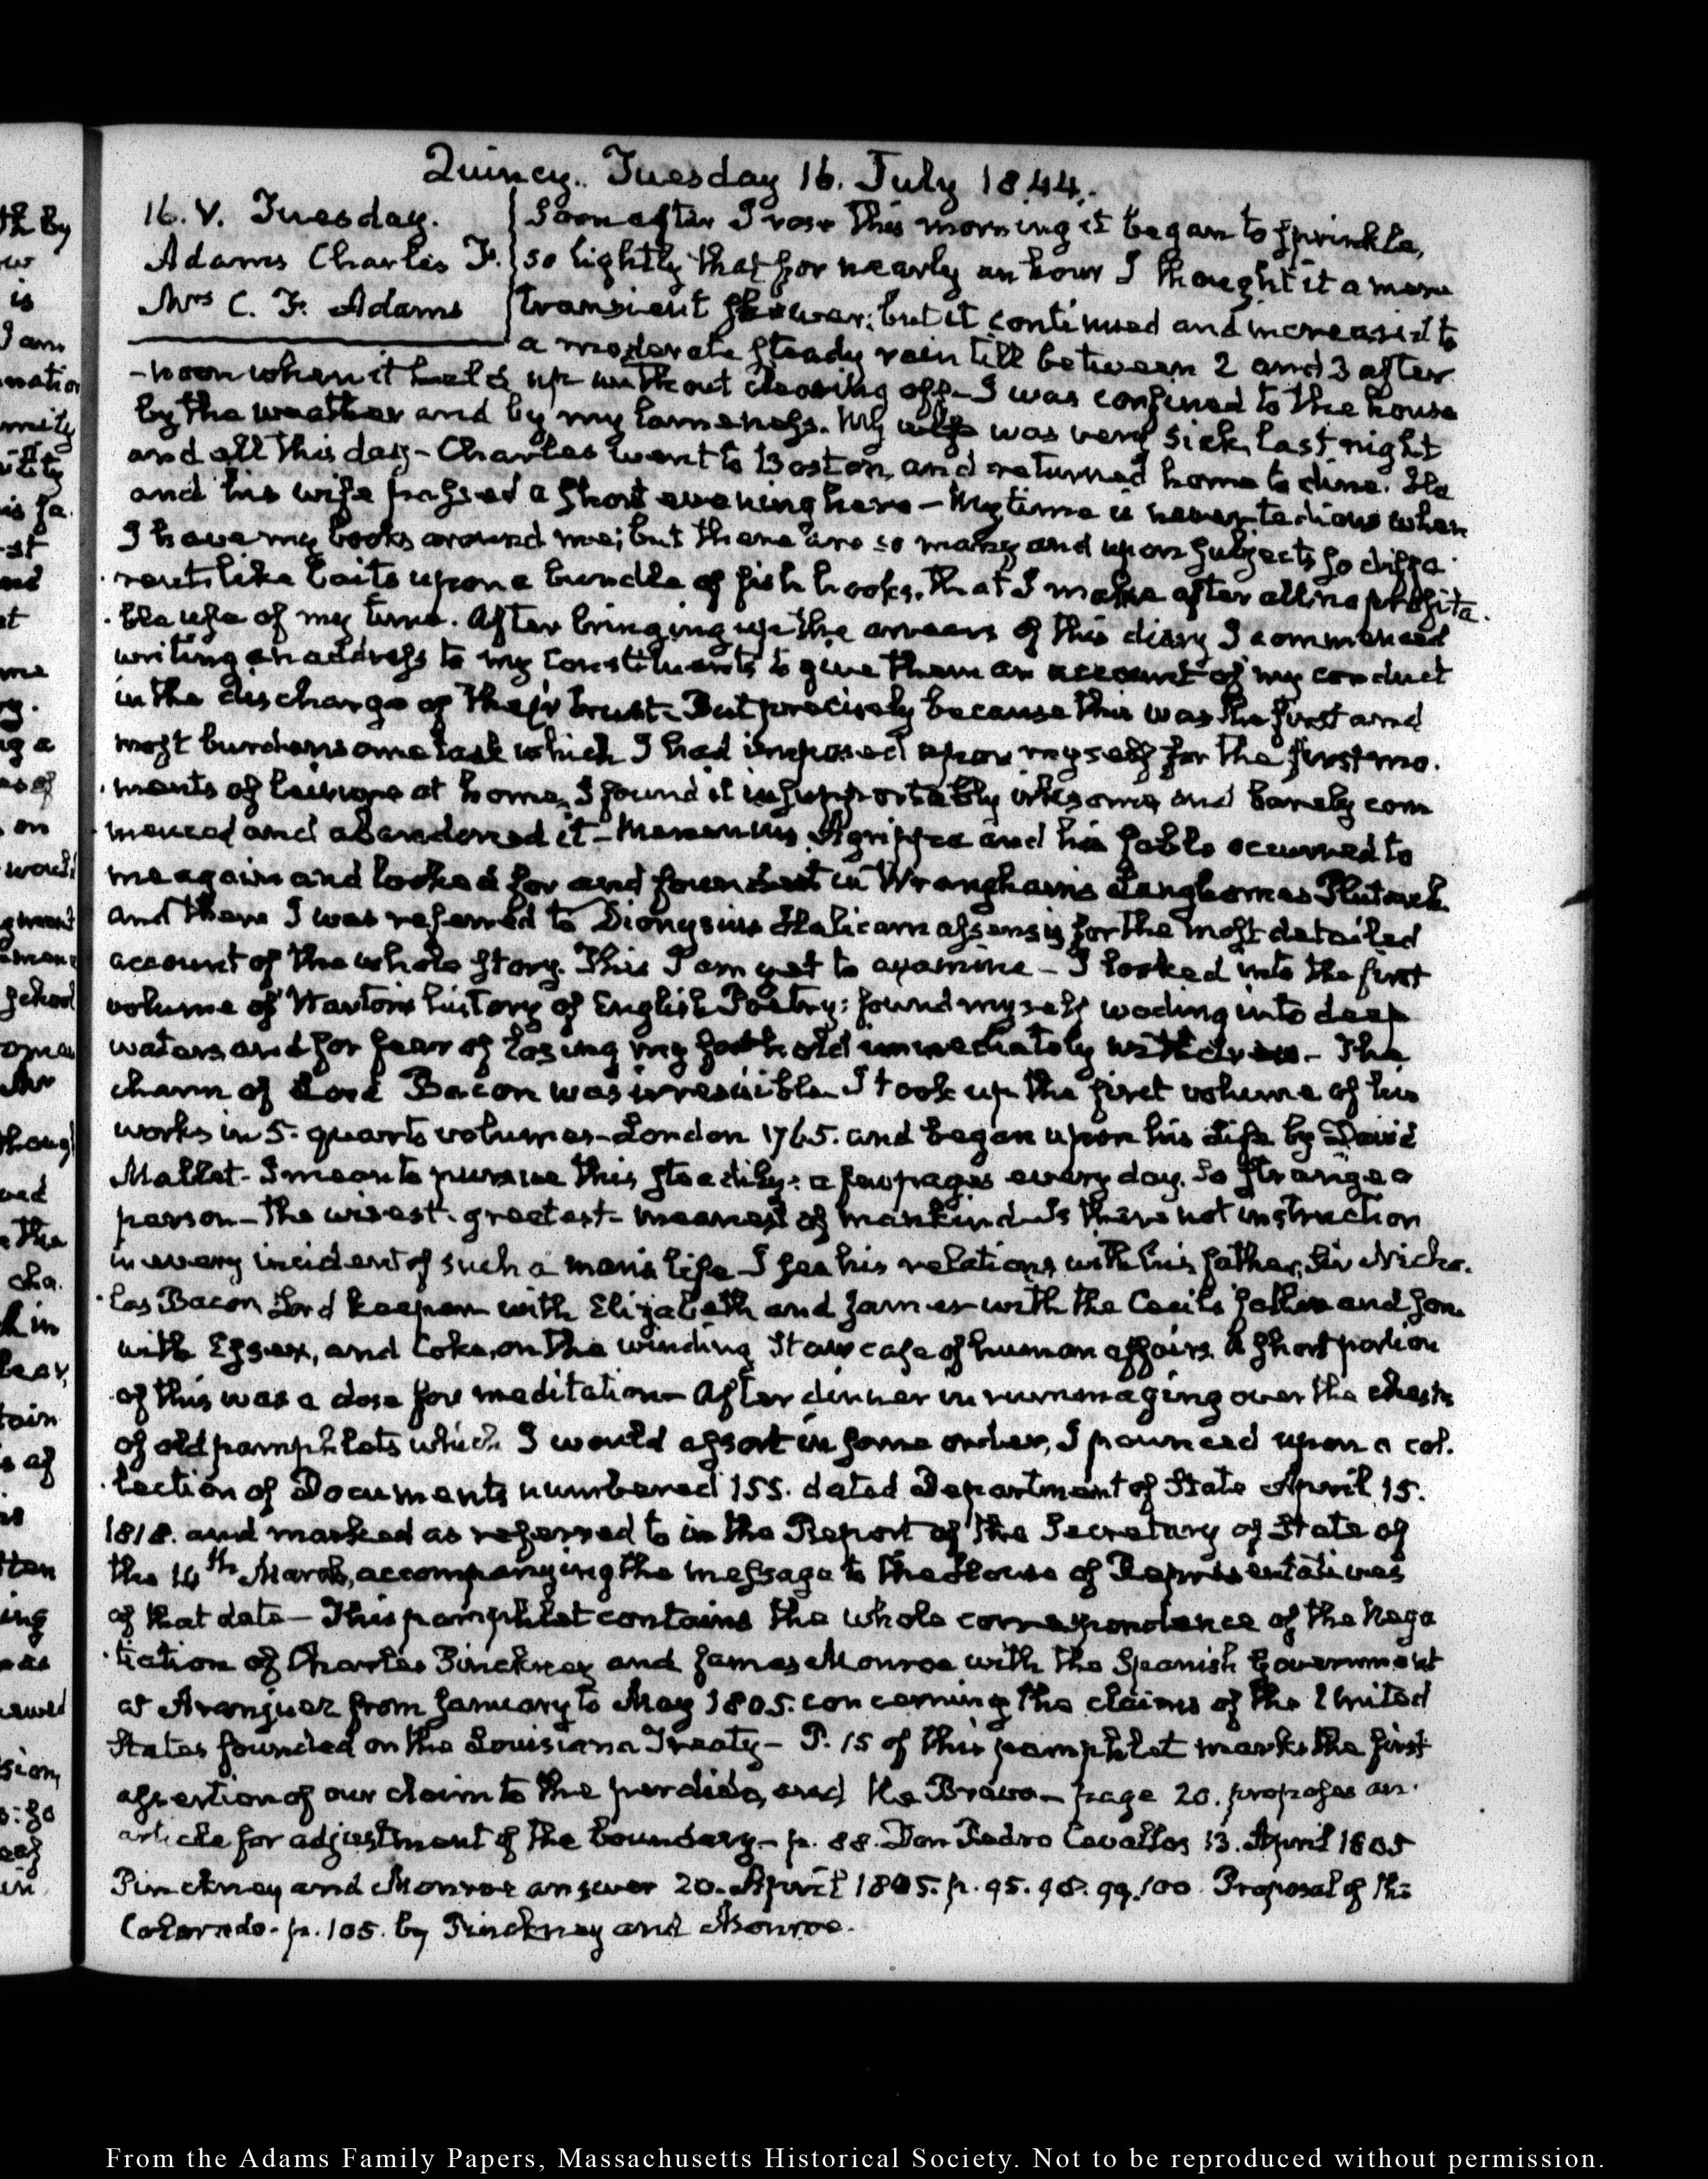 Quincy. Tuesday 16. July 1844.
16. V. Tuesday.
Adams Charles F.
Mrs C. F. Adams
Soon after I rose this morning it began to sprinkle,
so lightly that for nearly an hour I thought it a mere
transient shower: but it continued and increased to
a moderate steady rain till between 2 and 3 after
-noon when it held up without clearing off- I was confined to the house
by the weather and by my lameness. My wife was very sick, last night
and all this day- Charles went to Boston, and returned home to dine. He
and his wife passed a short evening here- My time is never tedious when
I have my books around me; but there are so many and upon subjects so diffe-
rent, like baits upon a bundle of fish hooks, that I make after all no profita-
ble use of my time. After bringing up the arrears of this diary I commenced
writing an address to my Constituents to give them an account of my conduct
in the discharge of their trust- But precisely because this was the first and
most burdensome task which I had imposed upon myself for the first mo-
ments of leisure at home, I found it insupportably irksome, and barely com
menced and abandoned it- Menenius Agrippa and his fable occurred to
me again and looked for and found it in Wrangham's Langhornes Plutarch
and there I was referred to Dionysius Halicarnassensis for the most detailed
account of the whole story. This I am yet to examine- I looked into the first
volume of Warton's history of English Poetry: found myself wading into deep
waters and for fear of losing my foothold immediately withdrew- The
charm of Lord Bacon was irresistible- I took up the first volume of his
works in 5. quarto volumes- London 1765. and began upon his Life by David
Mallet- I mean to pursue this steadily: a few pages every day. So strange a
person- the wisest- greatest- meanest of mankind- Is there not instruction
in every incident of such a man's life- I see his relations with his father, Sir Nicho-
las Bacon Lord keeper- with Elizabeth and James- with the Cecils father and son-
with Essex, and Coke, on the winding Stair case of human affairs. A short portion
of this was a dose for meditation- After dinner in rummaging over the chests
of old pamphlets which I would assort in some order, I pounced upon a col-
lection of Documents numbered 155. dated Department of State April 15.
1818. and marked as referred to in the Report of the Secretary of State of
the 14th March, accompanying the message to the House of Representatives
of that date- This pamphlet contains the whole correspondence of the Nego
tiation of Charles Pinckney and James Monroe with the Spanish Government
at Aranjuez from January to May 1805. concerning the claims of the United
States founded on the Louisiana Treaty- P. 15 of this pamphlet marks the first
assertion of our claim to the perdido, and the Bravo- page 20. proposes an
article for adjustment of the boundary- p. 88. Don Pedro Cevallos 13. April 1805
Pinckney and Monroe answer 20. April 1805. p. 95. 98. 99. 100. Proposal of the
Colorado- p. 105. by Pinckney and Monroe.
From the Adams Family Papers, Massachusetts Historical Society. Not to be reproduced without permission.